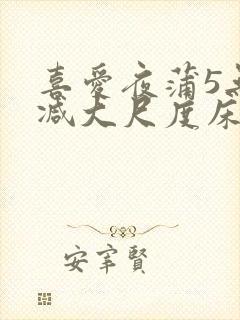 喜愛夜蒲5無
减大尺度床
安宰賢